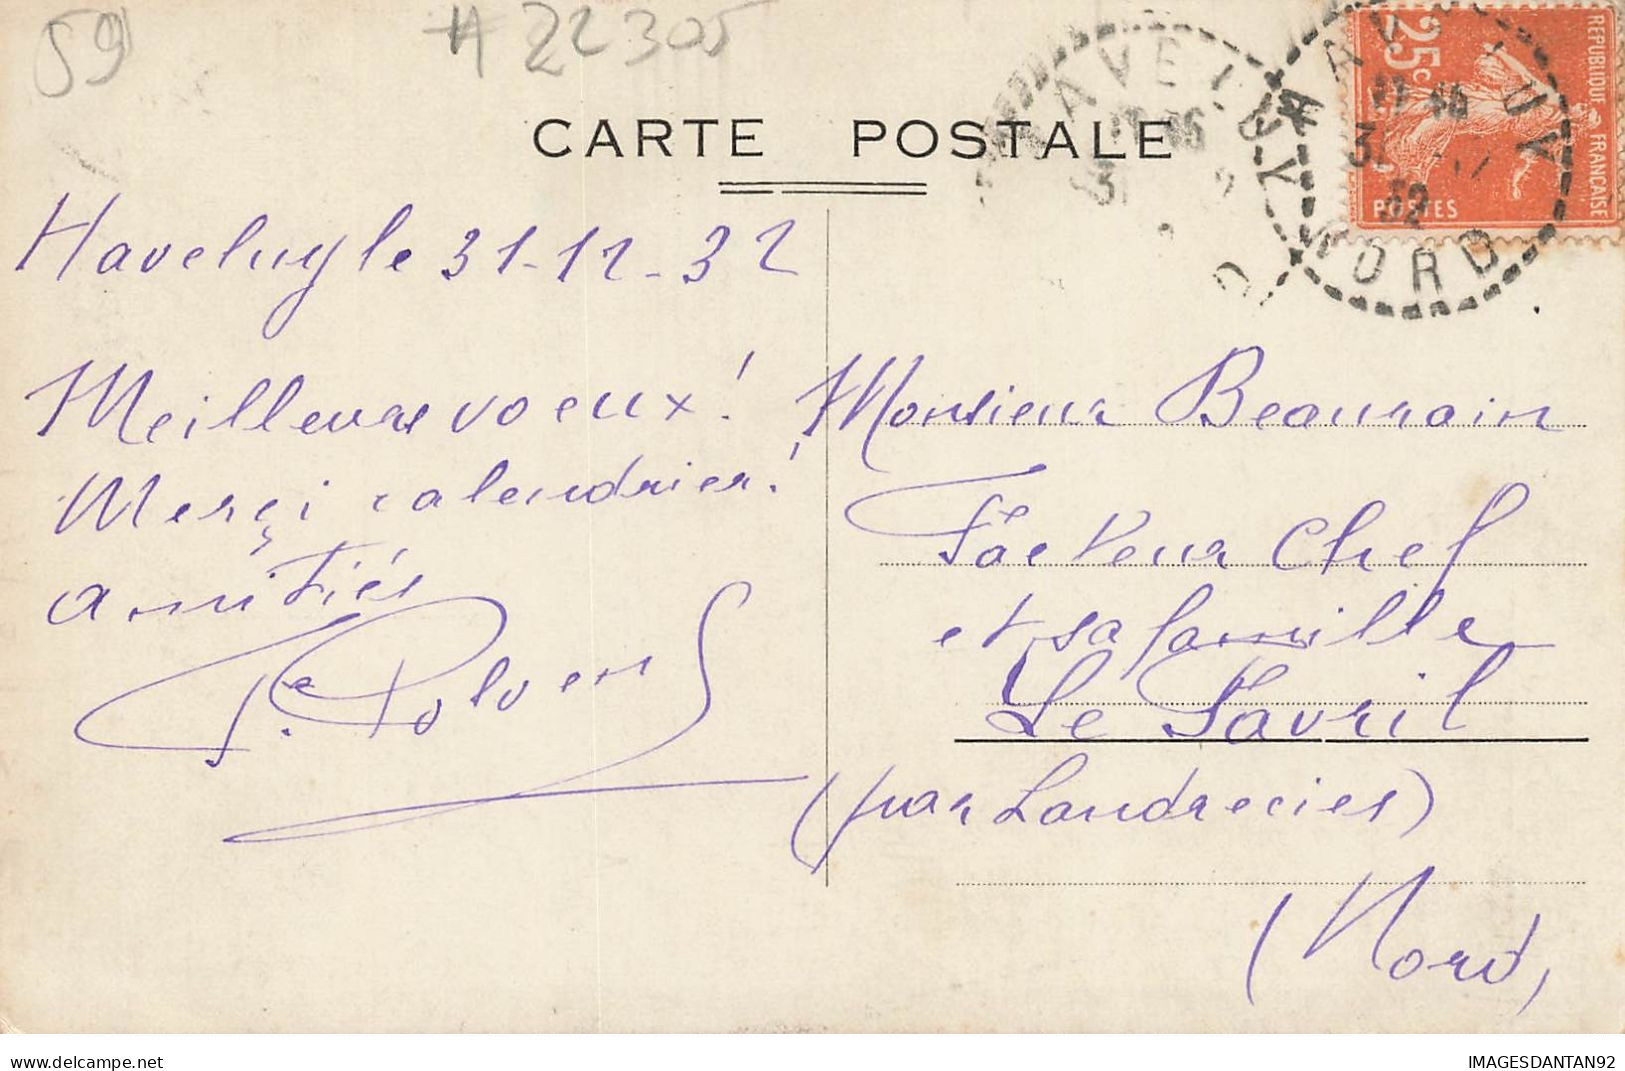 59
# 22305
CARTE POSTALE
HAVELUY
HAVELUY
NORD
25c
REPUBLIQUE FRANÇAISE
POSTES
31
32
Haveluy le 31-12-32
Meilleurs voeux!
Merçi calendrier!
amitiés
Monsieur Beaurain
Facteur Chef
et sa famille
Le Favril
(par Landrecies)
(Nord)
delcampe.net
IMAGESDANTAN92